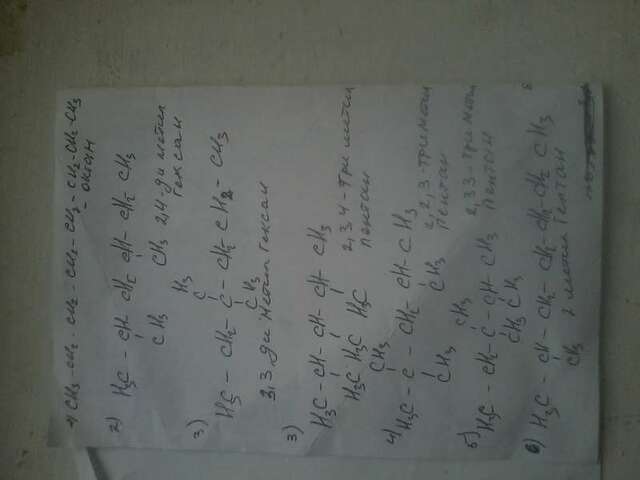 1) CH3-CH2-CH2-CH2-CH3-CH2-CH2-CH3
- октан
2) H3C - CH CH2 CH-CH2 CH3
CH3 CH3 2,4-ди метил
гексан
H3
C
3) H3C - CH2 - C - CH2 CH2 - CH3
CH3
3,3 ди метил гексан
3) H3C - CH - CH - CH - CH3
H3C H3C H3C 2,3,4-три метил
пентан
CH3
4) H3C - C - CH2 - CH - CH3
CH3 CH3 2,2,3-три
пентан
CH3
5) H3C - CH2 - C - CH - CH3 пентан
CH3 CH3
6) H3C - CH - CH2 - CH2-CH2-CH2 CH3
CH3 2 метил гептан